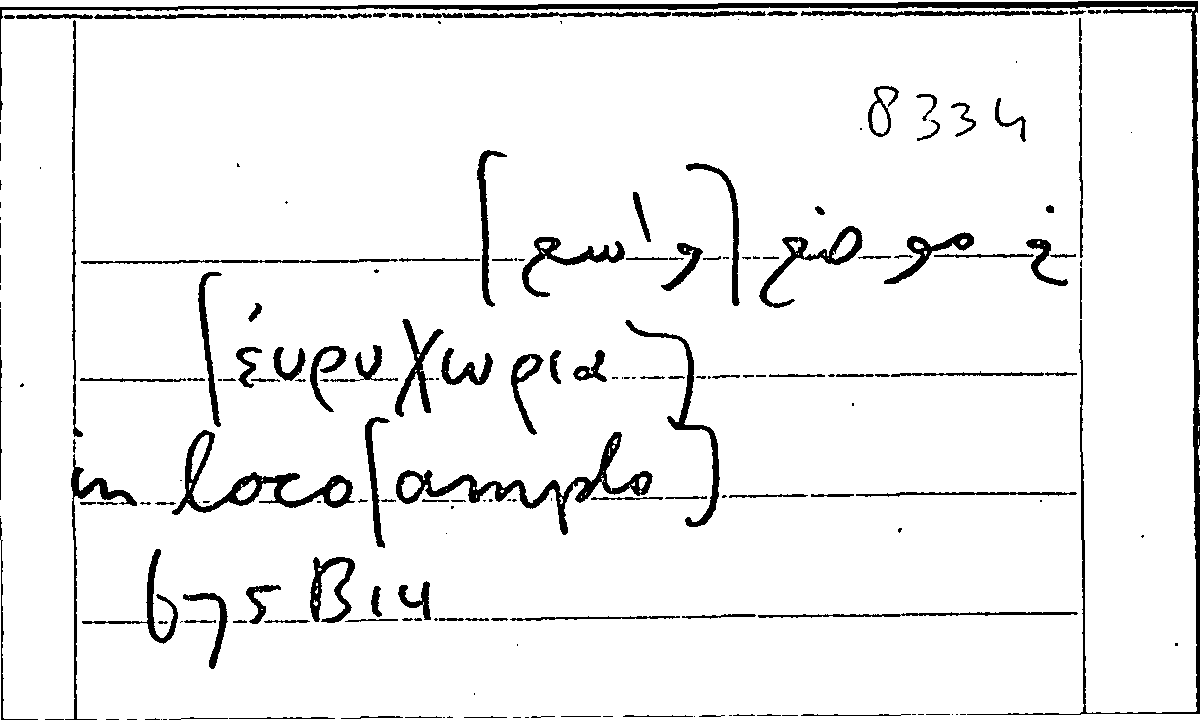 8334
في موضع [واسع]
[εὐρυχωρία]
in loco [amplo]
675 B 14